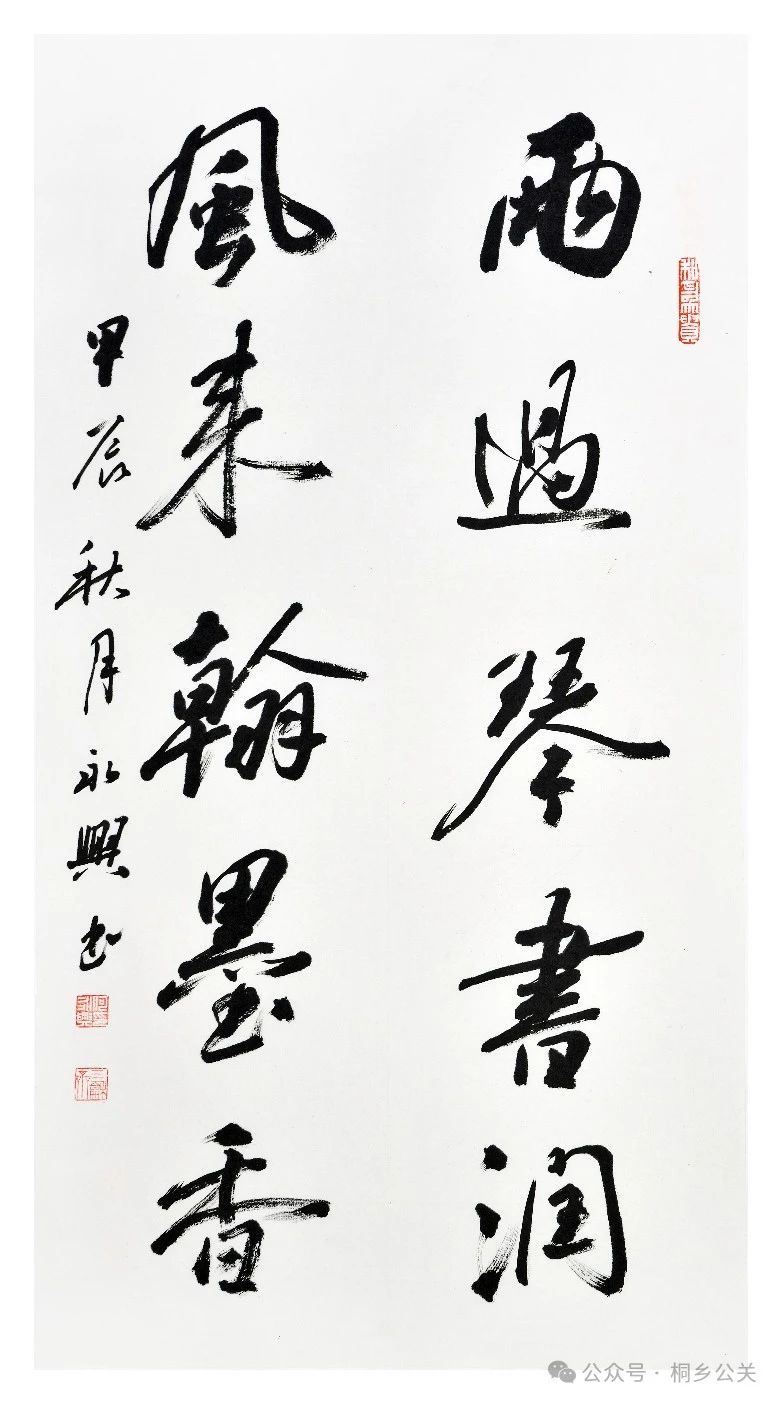 雨過琴書潤
風來翰墨香
甲辰秋月永興书
公众号·桐乡公关